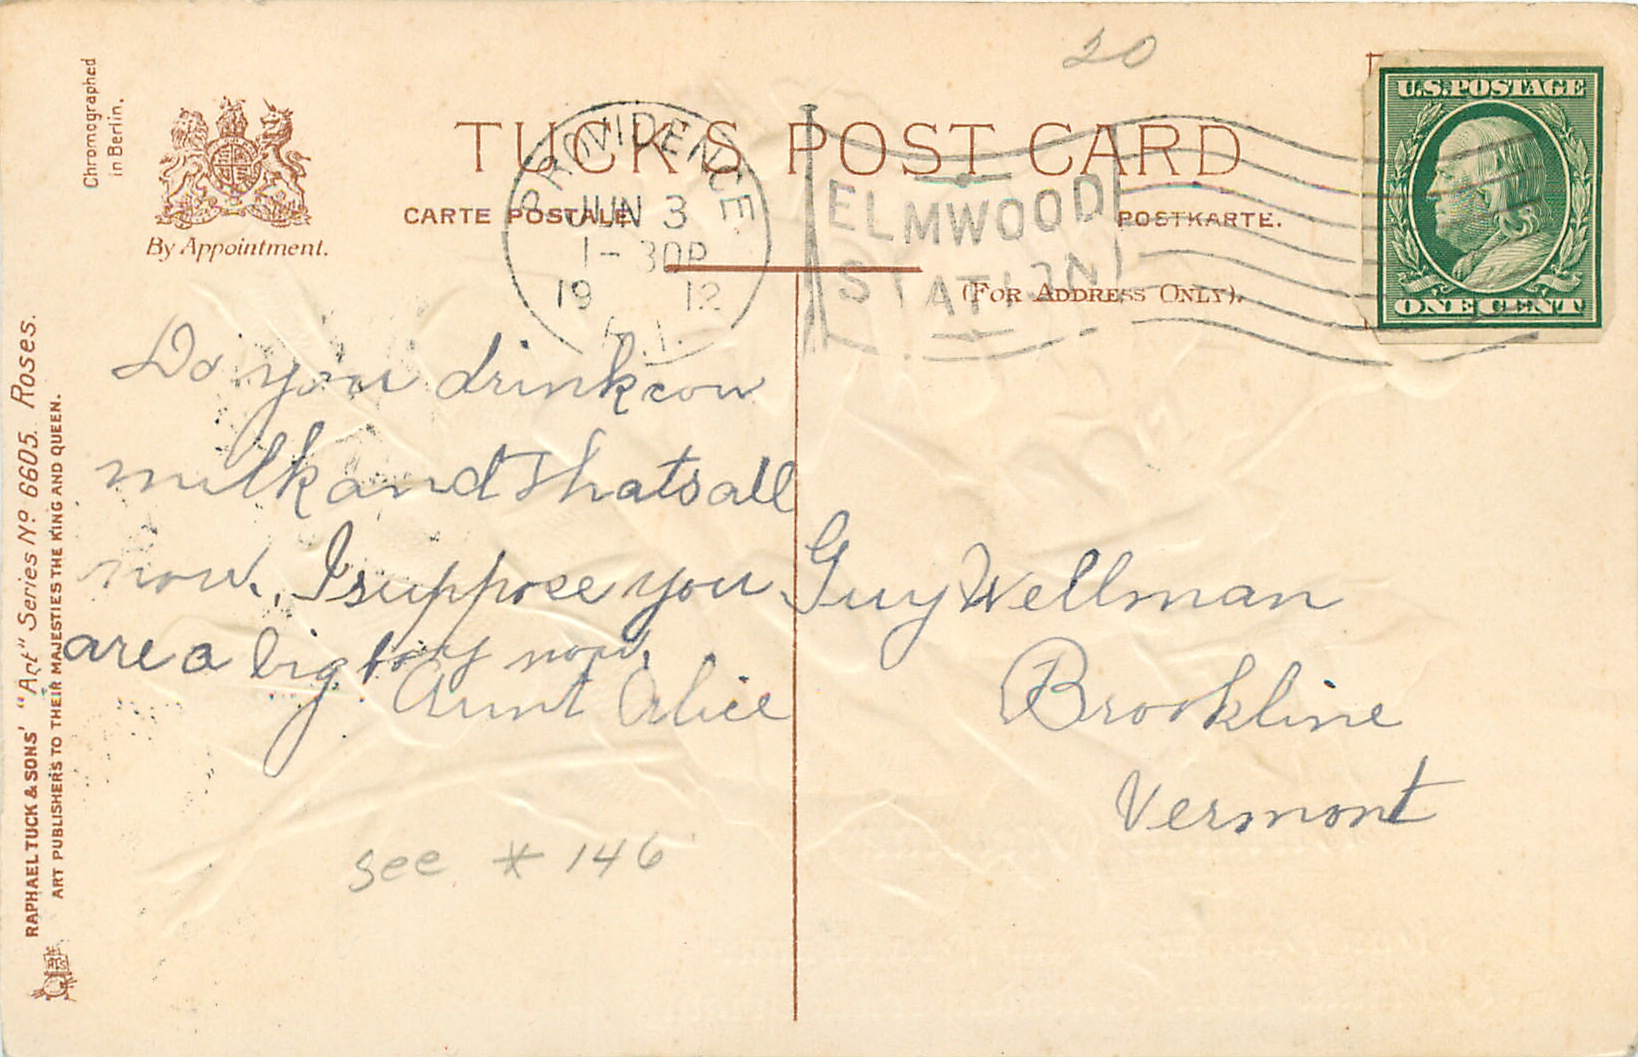 20
Chromographed
in Berlin.
By Appointment.
TUCK'S POST CARD
CARTE POSTALE.
POSTKARTE.
(FOR ADDRESS ONLY).
PROVIDENCE
JUN 3
1-30P
1912
R.I.
ELMWOOD
STATION
U.S. POSTAGE
ONE CENT
Do you drink cow
milk and thats all
now. I suppose you
are a big boy now.
Aunt Alice
see * 146
Guy Wellman
Brookline
Vermont
RAPHAEL TUCK & SONS' "Art" Series No. 6605. Roses.
ART PUBLISHERS TO THEIR MAJESTIES THE KING AND QUEEN.